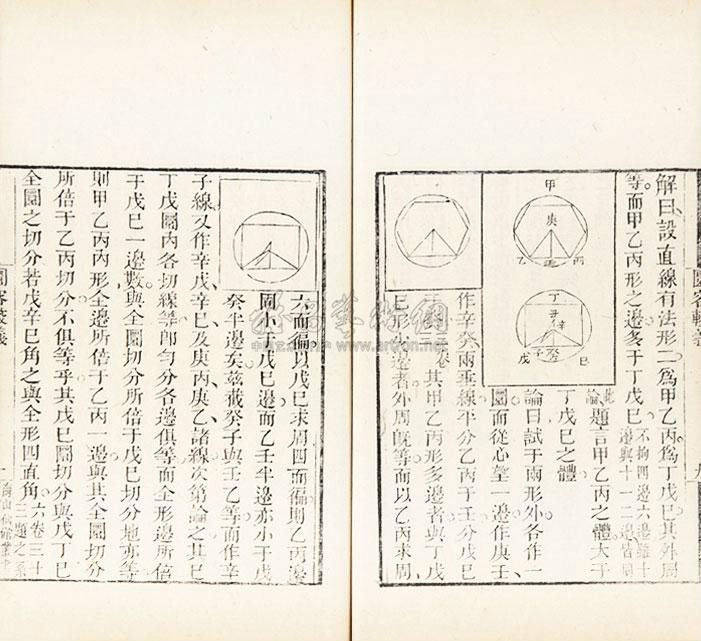 解曰設直線有法形二為甲乙丙為丁戊巳其外周
等而甲乙丙形之邊多于丁戊巳不拘四邊六邊雖十
邊與十一二邊皆同
此題言甲乙丙之體大于
論
丁戊巳之體
論曰試于兩形外各作一
圜而從心望一邊作庚壬
作辛癸兩垂線平分乙丙于壬分戊巳
于癸
其甲乙丙形多邊者與丁戊
巳形少邊者外周既等而以乙丙求周
甲
庚
乙
壬
丙
丁
辛
戊
子
癸
巳
六而徧以戊巳求周四而徧則乙丙邊
固小于戊巳邊而乙壬半邊亦小于戊
癸半邊矣茲截癸子與壬乙等而作辛
子線又作辛戊辛巳及庚丙庚乙諸線次第論之其巳
丁戊圜內各切線等即勻分各邊俱等而全形邊所倍
于戊巳一邊數與全圜切分所倍于戊巳切分地亦等
則甲乙丙內形全邊所倍于乙丙一邊與其全圜切分
所倍于乙丙切分不俱等乎其戊巳圜切分與戊丁巳
全圜之切分若戊辛巳角之與全形四直角六卷三十
三題之系
圜容較義
海山仙館叢書